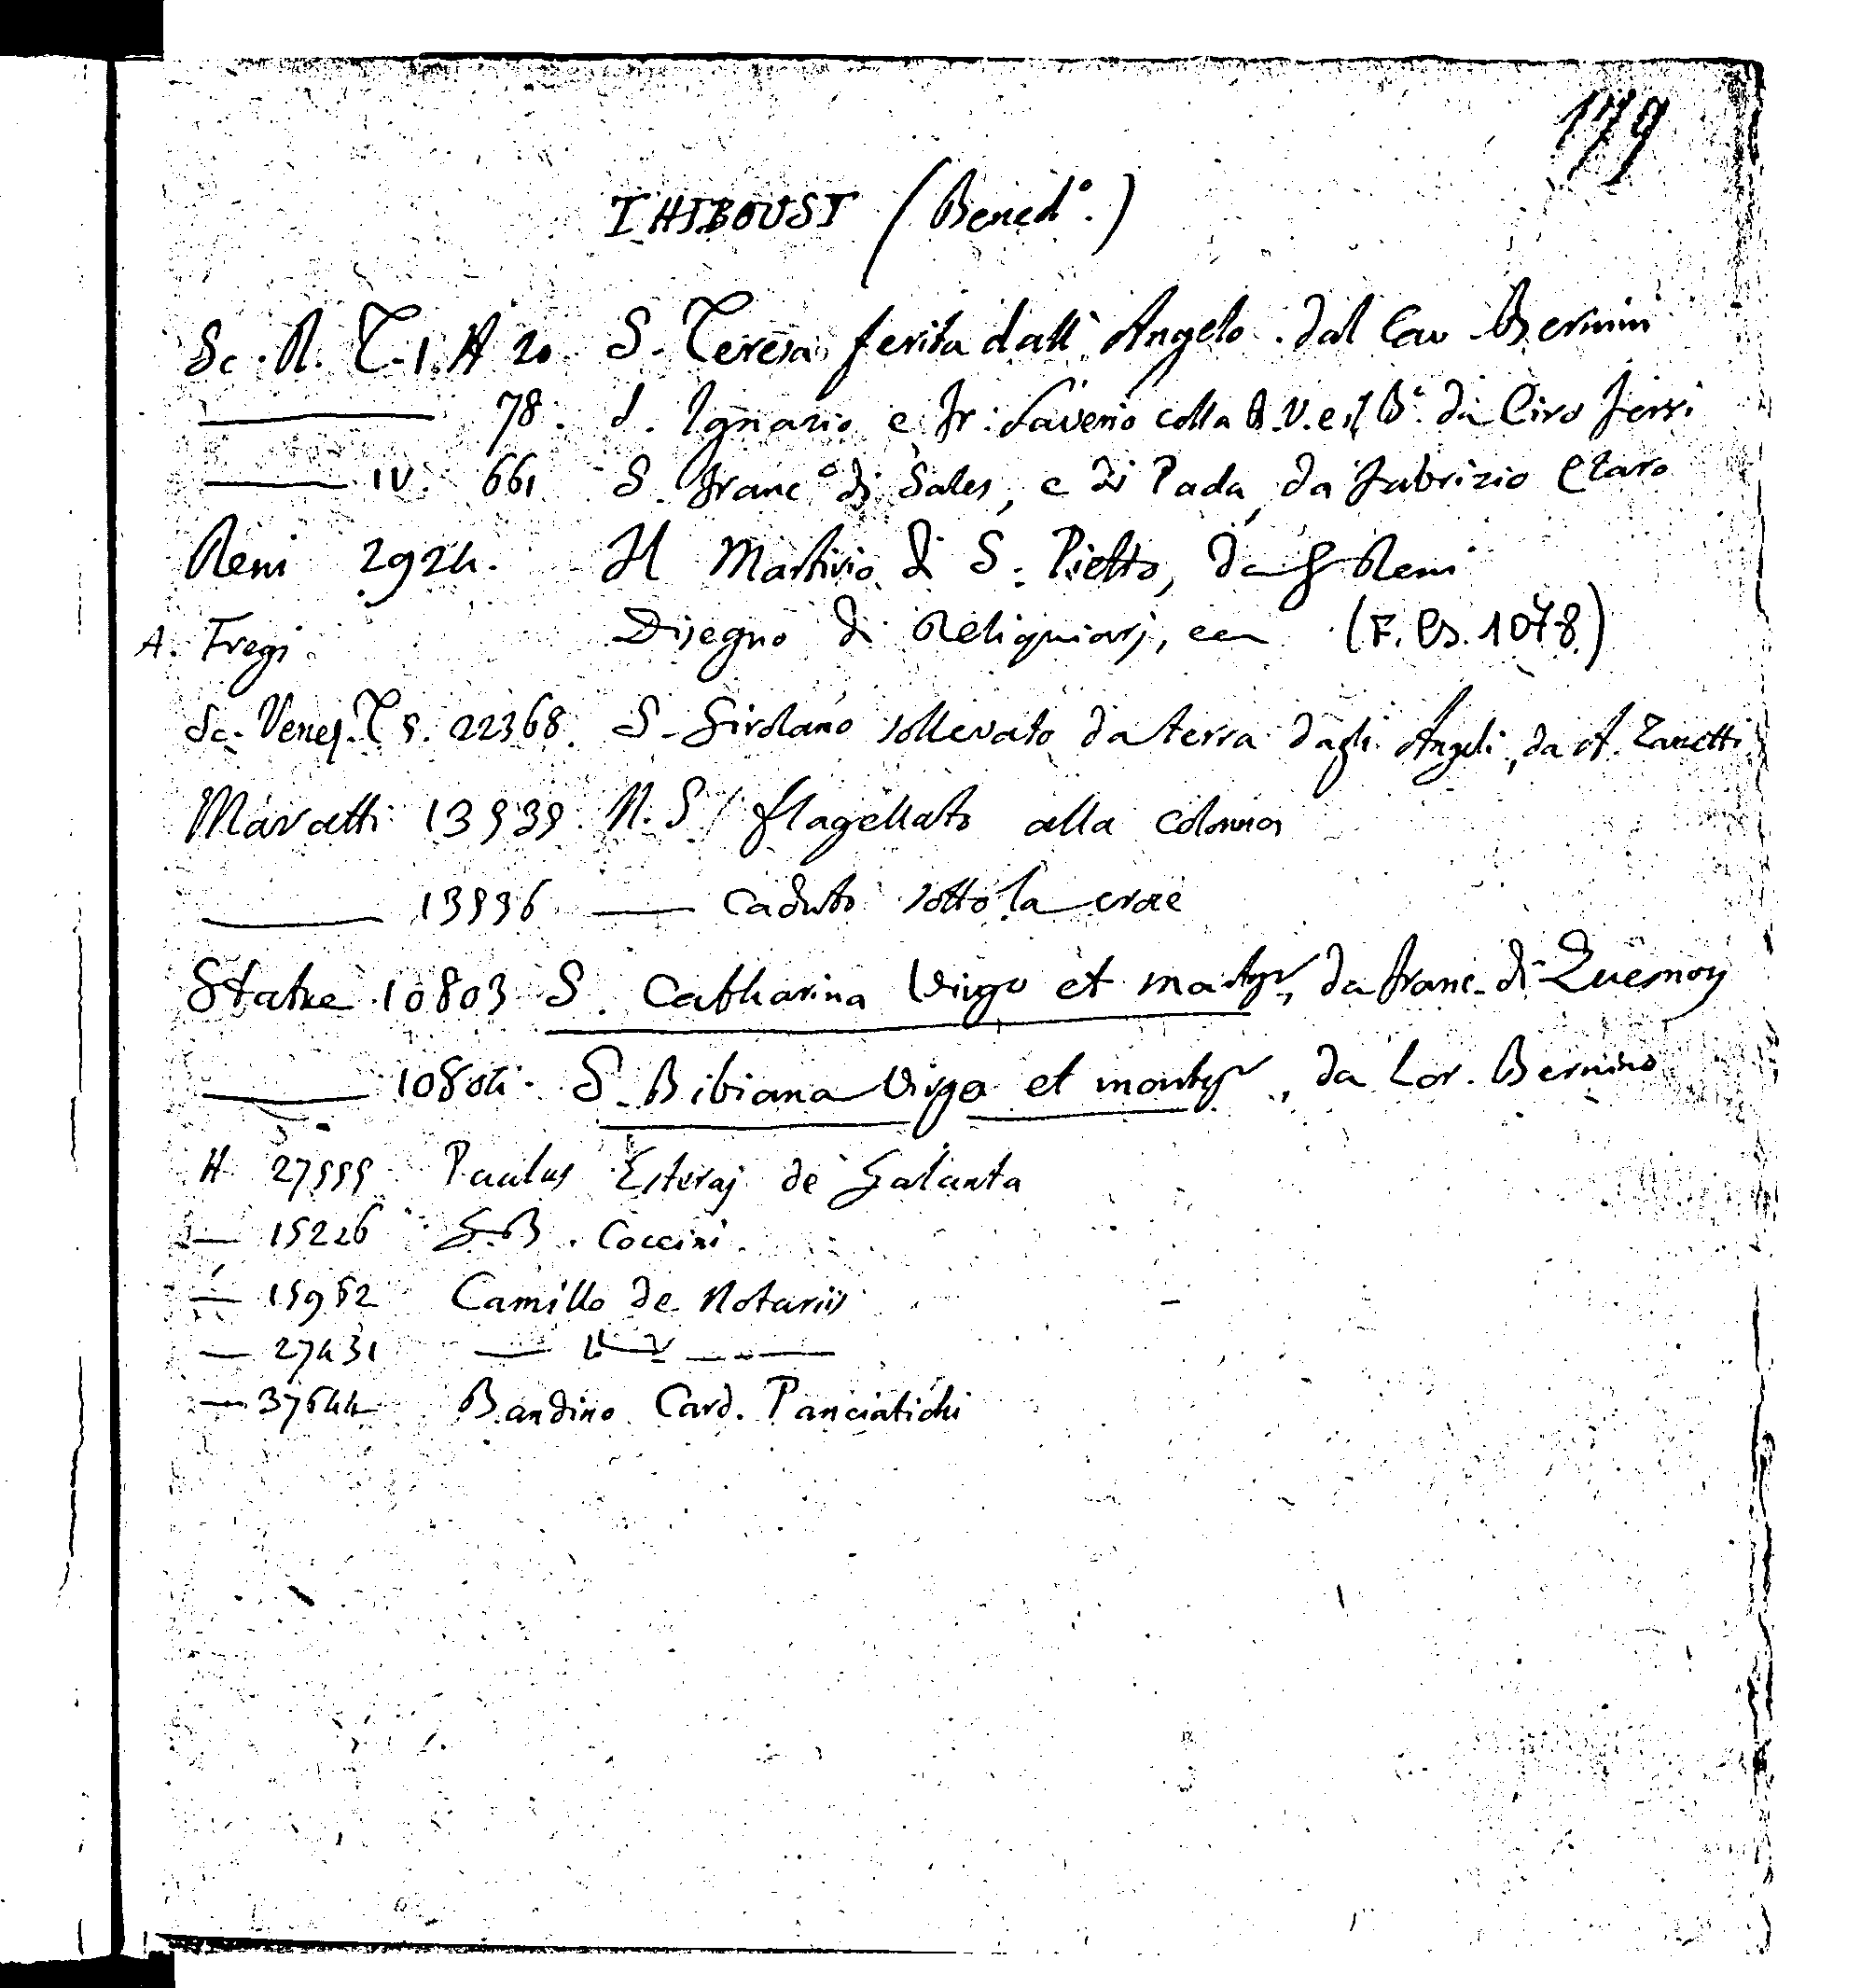 179
THIBOUST (Bened°.)
Sc. R. T. I. H 20 S. Teresa ferita dall' Angelo. dal Cav Bernini
——— 78. S. Ignazio e Fr: Saverio colla B.V. e il B°. da Ciro Ferri
——— IV. 661 S. Franc° di Sales, e di Pada, da Fabrizio Claro
Reni 2924. Il Martirio di S. Pietro, da G Reni
A. Fregi. Disegno di Reliquiarj, (F. Cs. 1078)
Sc. Venez. T 5. 22368. S. Girolamo sollevato da terra dagli Angeli, da A. Zanetti
Maratti 13939. N. S. flagellato alla colonna
——— 13936 —— caduto sotto la croce
Statue 10803 S. Catharina Virgo et martyr, da Franc. di Quesnoy
——— 10804. S. Bibiana Virgo et martyr, da Lor. Bernino
H 27999 Paulus Esteraj de Galanta
— 15226 GB. Coccini
— 15952 Camillo de Notariis
— 27431 —— ——
— 37644 Bandino Card. Panciatichi